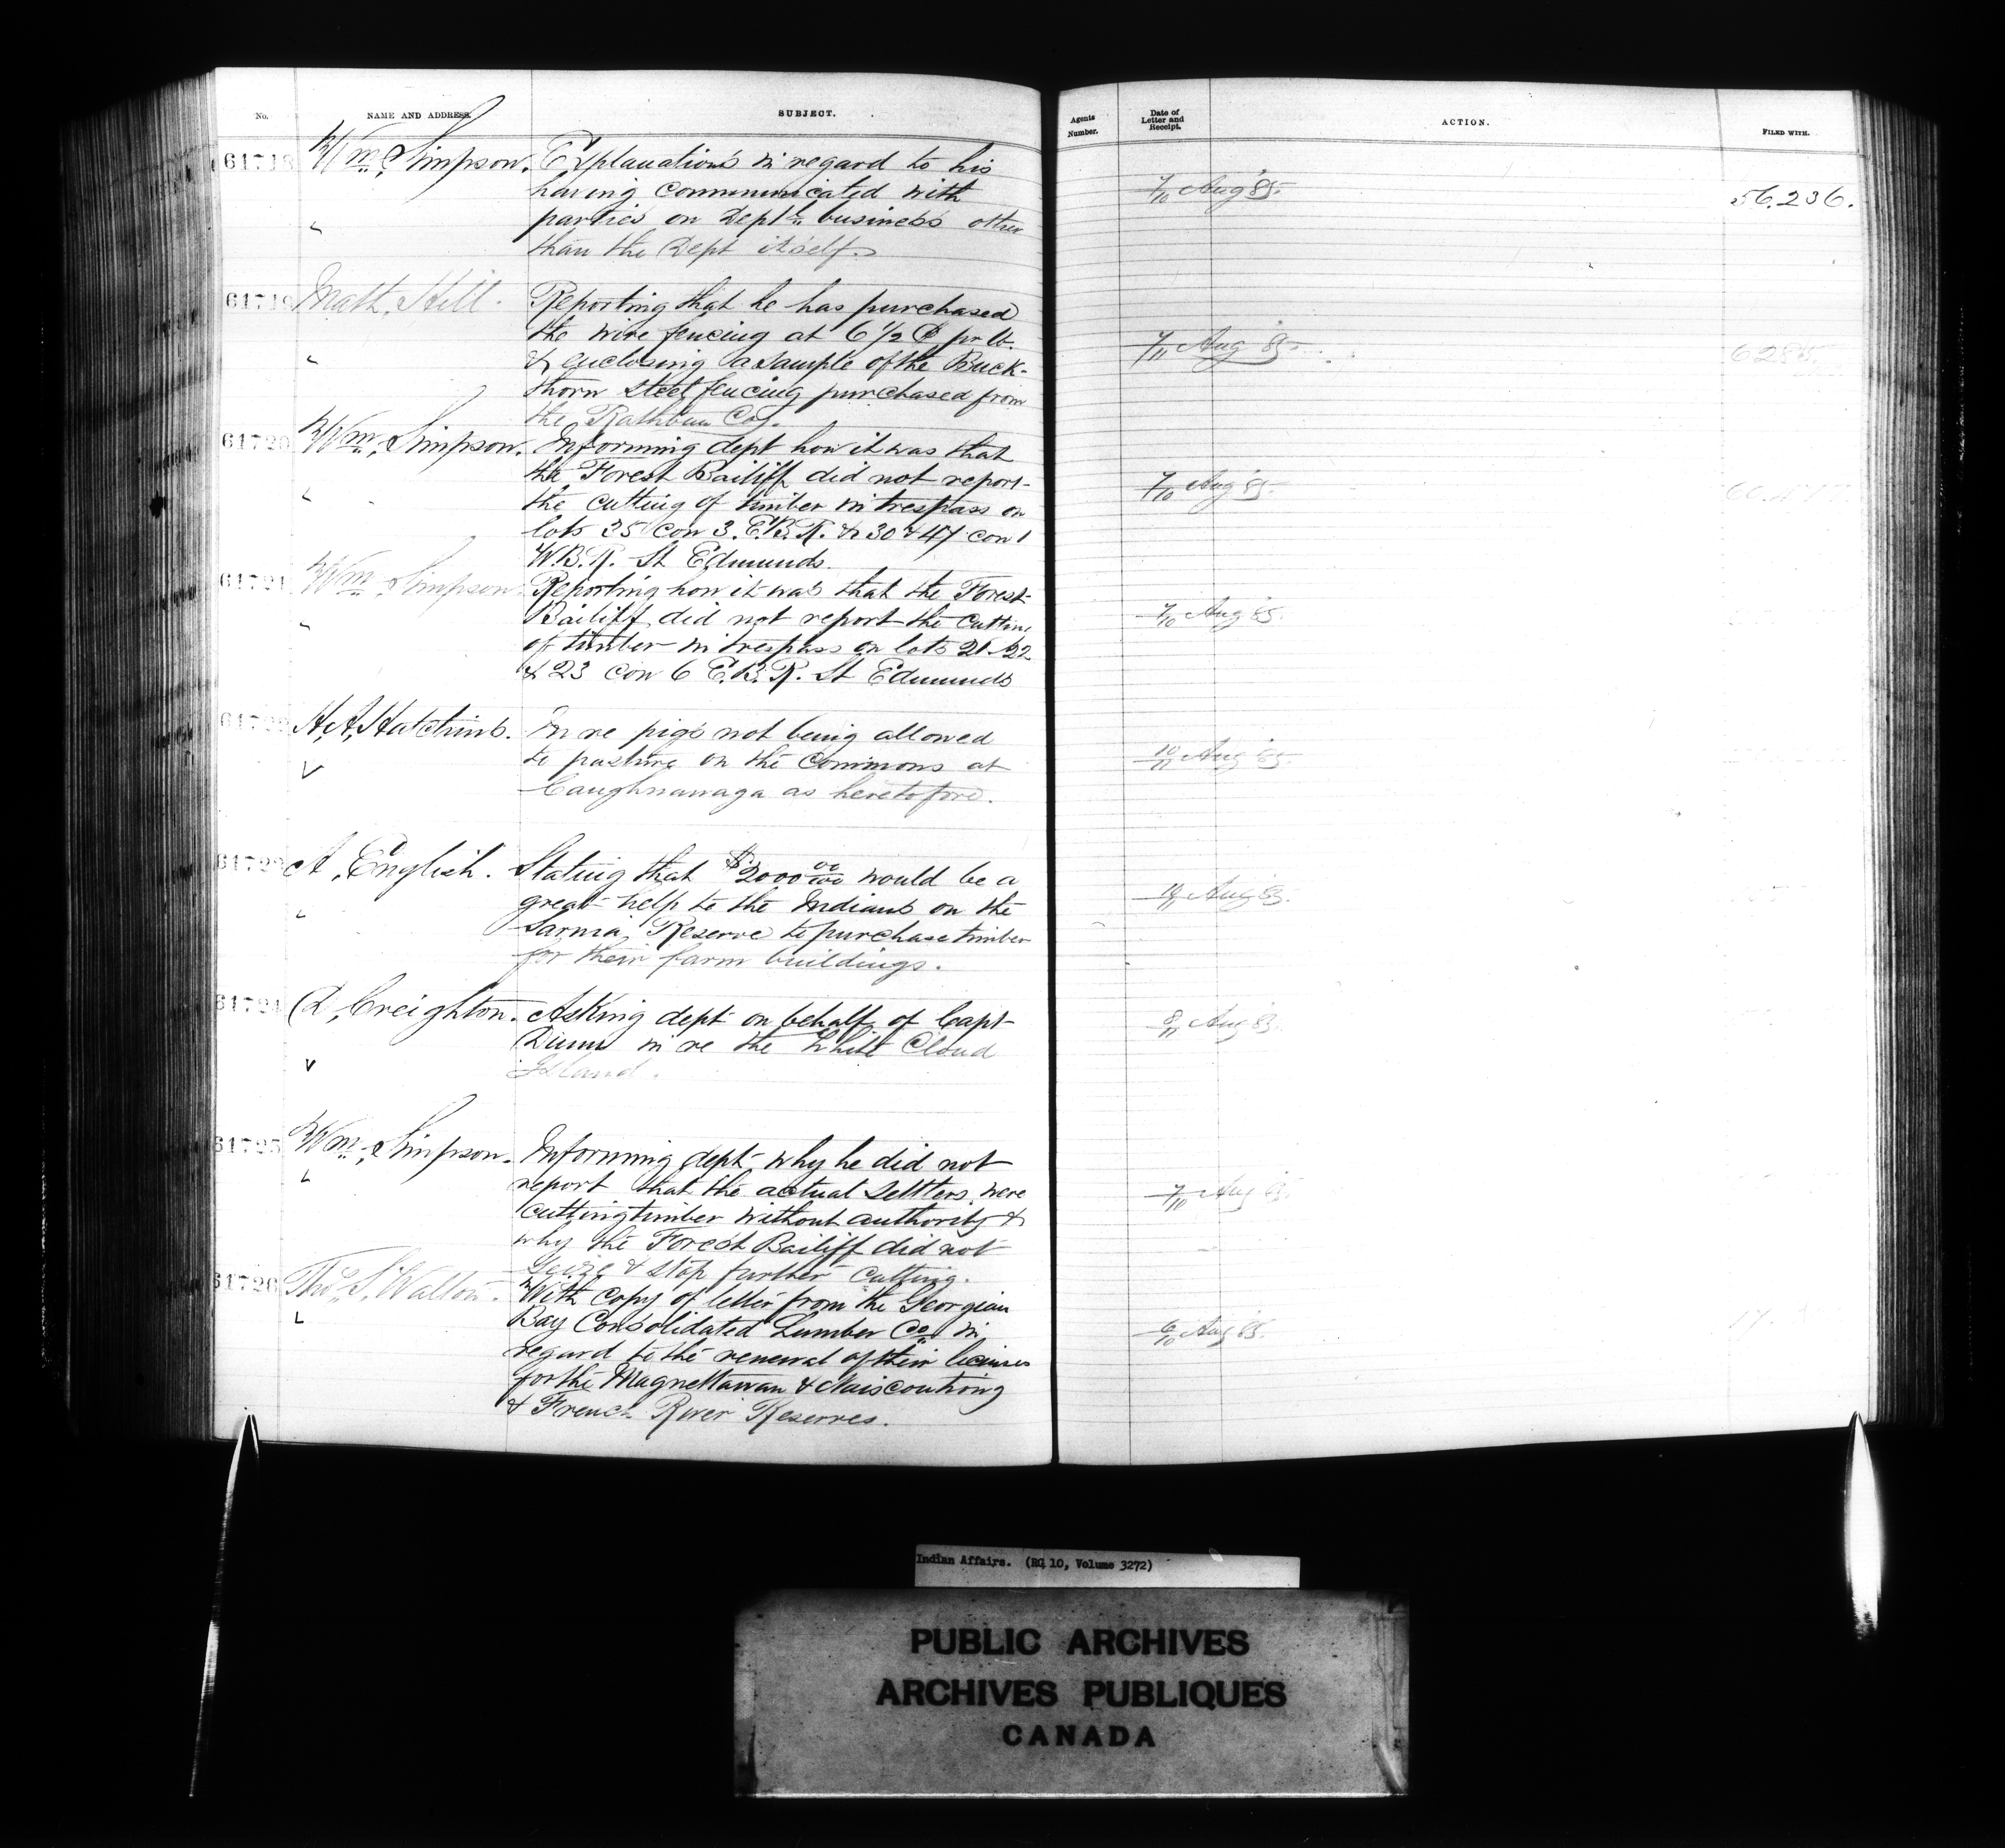 No.
NAME AND ADDRESS.
SUBJECT.
Agents
Number.
Date of
Letter and
Receipt.
ACTION.
FILED WITH.
61718
Wm Simpson.
Explanations in regard to his
having communicated with
parties on Deptl business other
than the Dept itself.
7/10 Aug 85
56.236.
61719
Math. Hill.
Reporting that he has purchased
the wire fencing at 6 1/2 ¢ pr lb.
& enclosing a sample of the Buck-
thorn steel fencing purchased from
the Rathbun Coy.
7/11 Aug 85
61720
Wm Simpson.
Informing dept how it was that
the Forest Bailiff did not report
the cutting of timber in trespass on
lots 35 con 3. E.B.R. & 30 & 47 con 1
W.B.R. St Edmunds.
7/10 Aug 85
61721
Wm Simpson.
Reporting how it was that the Forest
Bailiff did not report the cutting
of timber in trespass on lots 21-22
& 23 con 6 E.B.R. St Edmunds
7/10 Aug 85
61722
H.A. Hatchins.
In re pigs not being allowed
to pasture on the Commons at
Caughnawaga as heretofore.
10/11 Aug 85
61723
A. English.
Stating that $2000 00/100 would be a
great help to the Indians on the
Sarnia Reserve to purchase timber
for their farm buildings.
Aug 85
61724
D. Creighton.
Asking dept on behalf of Capt
Dunn in re the White Cloud
Island.
8/11 Aug 85
61725
Wm Simpson.
Informing dept why he did not
report that the actual settlers were
cutting timber without authority &
why the Forest Bailiff did not
seize & stop further cutting.
7/10 Aug 85
61726
Thos. S. Walton.
With copy of letter from the Georgian
Bay Consolidated Lumber Co. in
regard to the renewal of their licenses
for the Magnettawan & Naiscoutiong
& French River Reserves.
6/10 Aug 85.
Indian Affairs. (RG 10, Volume 3272)
PUBLIC ARCHIVES
ARCHIVES PUBLIQUES
CANADA